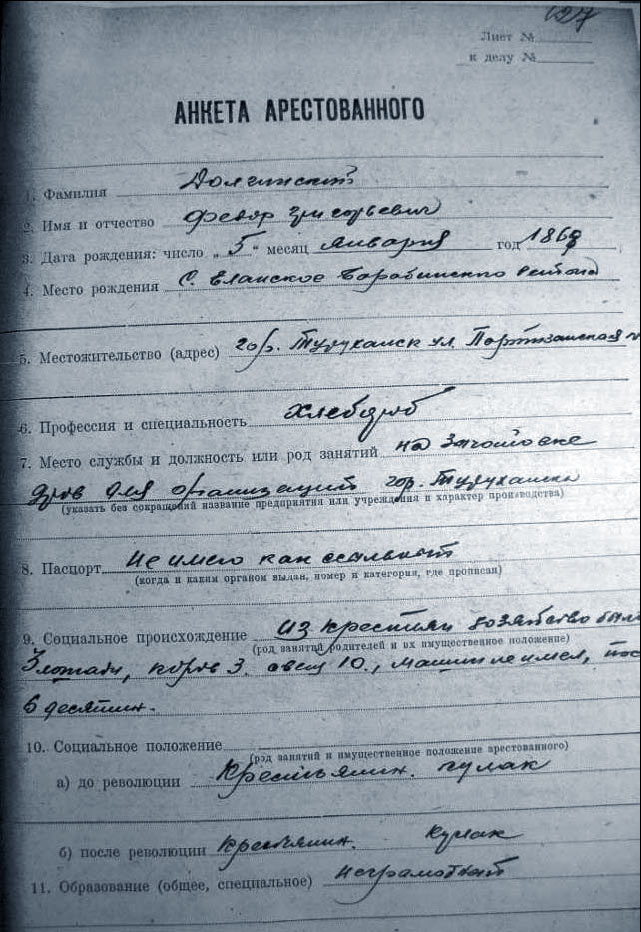 127
Лист №
к делу №
АНКЕТА АРЕСТОВАННОГО
1. Фамилия
2. Имя и отчество Федор Григорьевич
3. Дата рождения: число „ 5 “ месяц января год 1868
4. Место рождения С. Еланское Барабинского района
5. Местожительство (адрес) гор. Туруханск ул. Партизанская
6. Профессия и специальность хлебороб
7. Место службы и должность или род занятий на заготовке
дров для организаций гор. Туруханска
(указать без сокращений название предприятия или учреждения и характер производства)
8. Паспорт Не имею как ссыльный
(когда и каким органом выдан, номер и категория, где прописан)
9. Социальное происхождение Из крестьян хозяйство было
(род занятий родителей и их имущественное положение)
3 лошади, коров 3, овец 10, машин не имел, пос
6 десятин.
10. Социальное положение
(род занятий и имущественное положение арестованного)
а) до революции Крестьянин. кулак
б) после революции Крестьянин. Кулак
11. Образование (общее, специальное) неграмотный